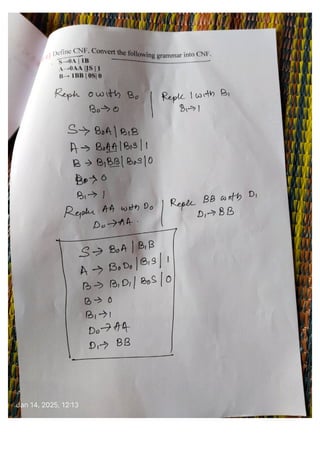 c) Define CNF. Convert the following grammar into CNF.
S→0A | 1B
A→0AA |1S | 1
B→ 1BB | 0S| 0
Replc 0 with B₀ | Replc 1 with B₁
B₀→0 B₁→1
S→ B₀A | B₁B
A→ B₀AA | B₀S | 1
B → B₁BB | B₀S | 0
B₀→ 0
B₁→ 1
Replc AA with D₀ | Replc BB with D₁
D₀→AA D₁→BB
S→ B₀A | B₁B
A→ B₀D₀ | B₁S | 1
B→ B₁D₁ | B₀S | 0
B→ 0
B₁→1
D₀→AA
D₁→ BB
Jan 14, 2025, 12:13